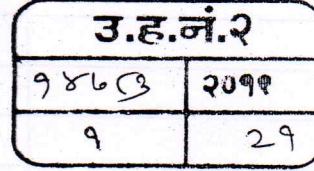 उ.ह.नं.२
१४७३ २०११
१ २१